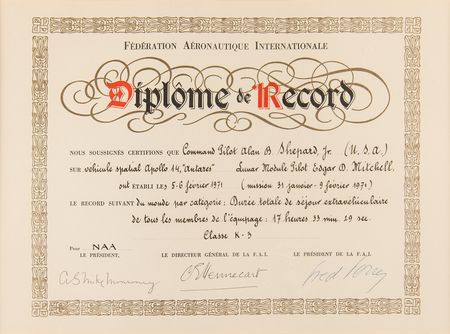 FÉDÉRATION AÉRONAUTIQUE INTERNATIONALE
Diplôme de Record
NOUS SOUSSIGNÉS CERTIFIONS QUE Command Pilot Alan B. Shepard, Jr. (U.S.A.)
SUR véhicule spatial Apollo 14, "Antares" Lunar Module Pilot Edgar D. Mitchell.
ont ÉTABLI LES 5-6 février 1971 (mission 31 janvier-9 février 1971)
LE RECORD SUIVANT du monde par catégorie: Durée totale de séjour extravéhiculaire
de tous les membres de l'équipage: 17 heures 33 min. 29 sec.
Classe K-3
Pour NAA
LE PRÉSIDENT, LE DIRECTEUR GÉNÉRAL DE LA F.A.I. LE PRÉSIDENT DE LA F.A.I.